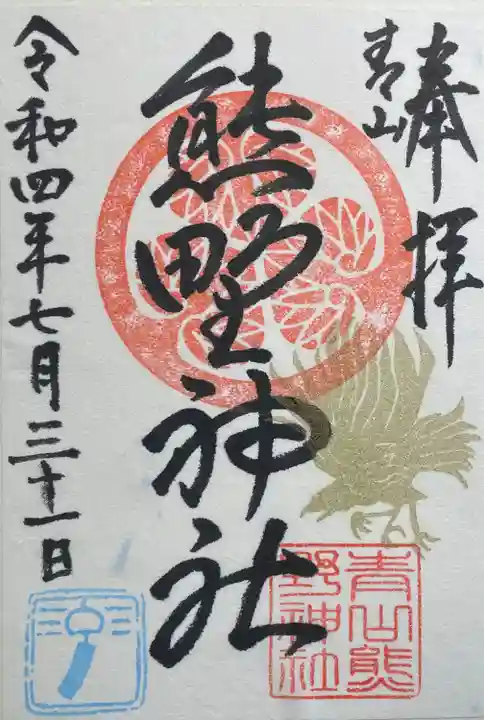 奉拝
青山
熊野神社
令和四年七月三十一日
青山熊
野神社